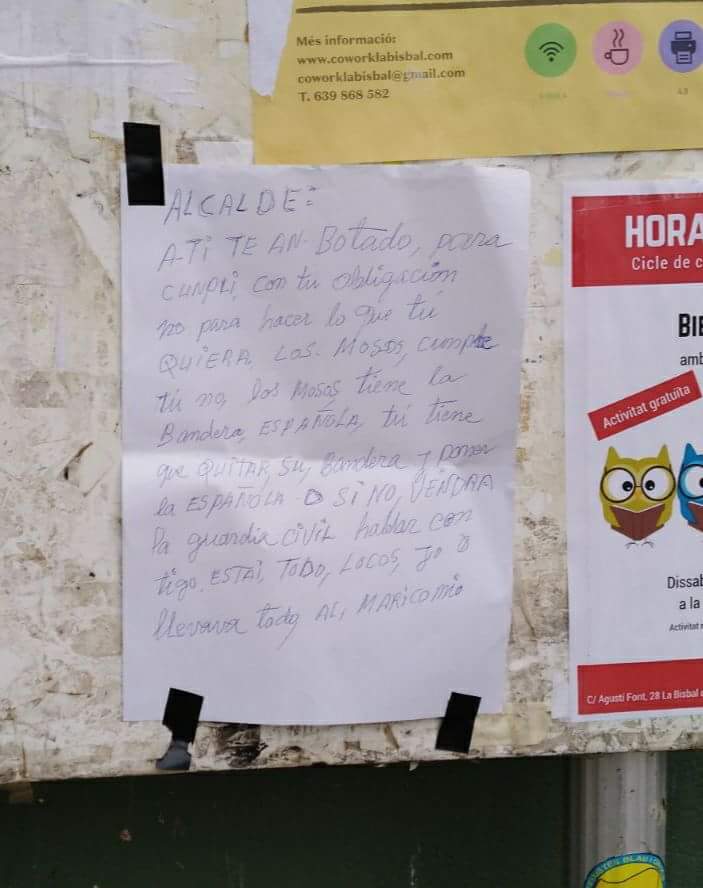 Més informació:
www.coworklabisbal.com
coworklabisbal@gmail.com
T. 639 868 582
ALCALDE:
A-TI TE AN-Botado, para
CUMPLI, con tu obligación
no para hacer lo que tú
QUIERA LOS. MOSOS, cumple
tú no, los Mosos, tiene la
Bandera, ESPAÑOLA, tú tiene
que QUITAR, SU, Bandera y poner
la ESPAÑOLA-O SI NO, VENDRA
la guardia civil hablar con
tigo. ESTAI, TODO, LOCOS, Jo o
llevava todo AL, MARICOMIO
HORA
Cicle de c
BIE
amb
Activitat gratuïta
Dissab
a la
Activitat
C/ Agustí Font, 28 La Bisbal